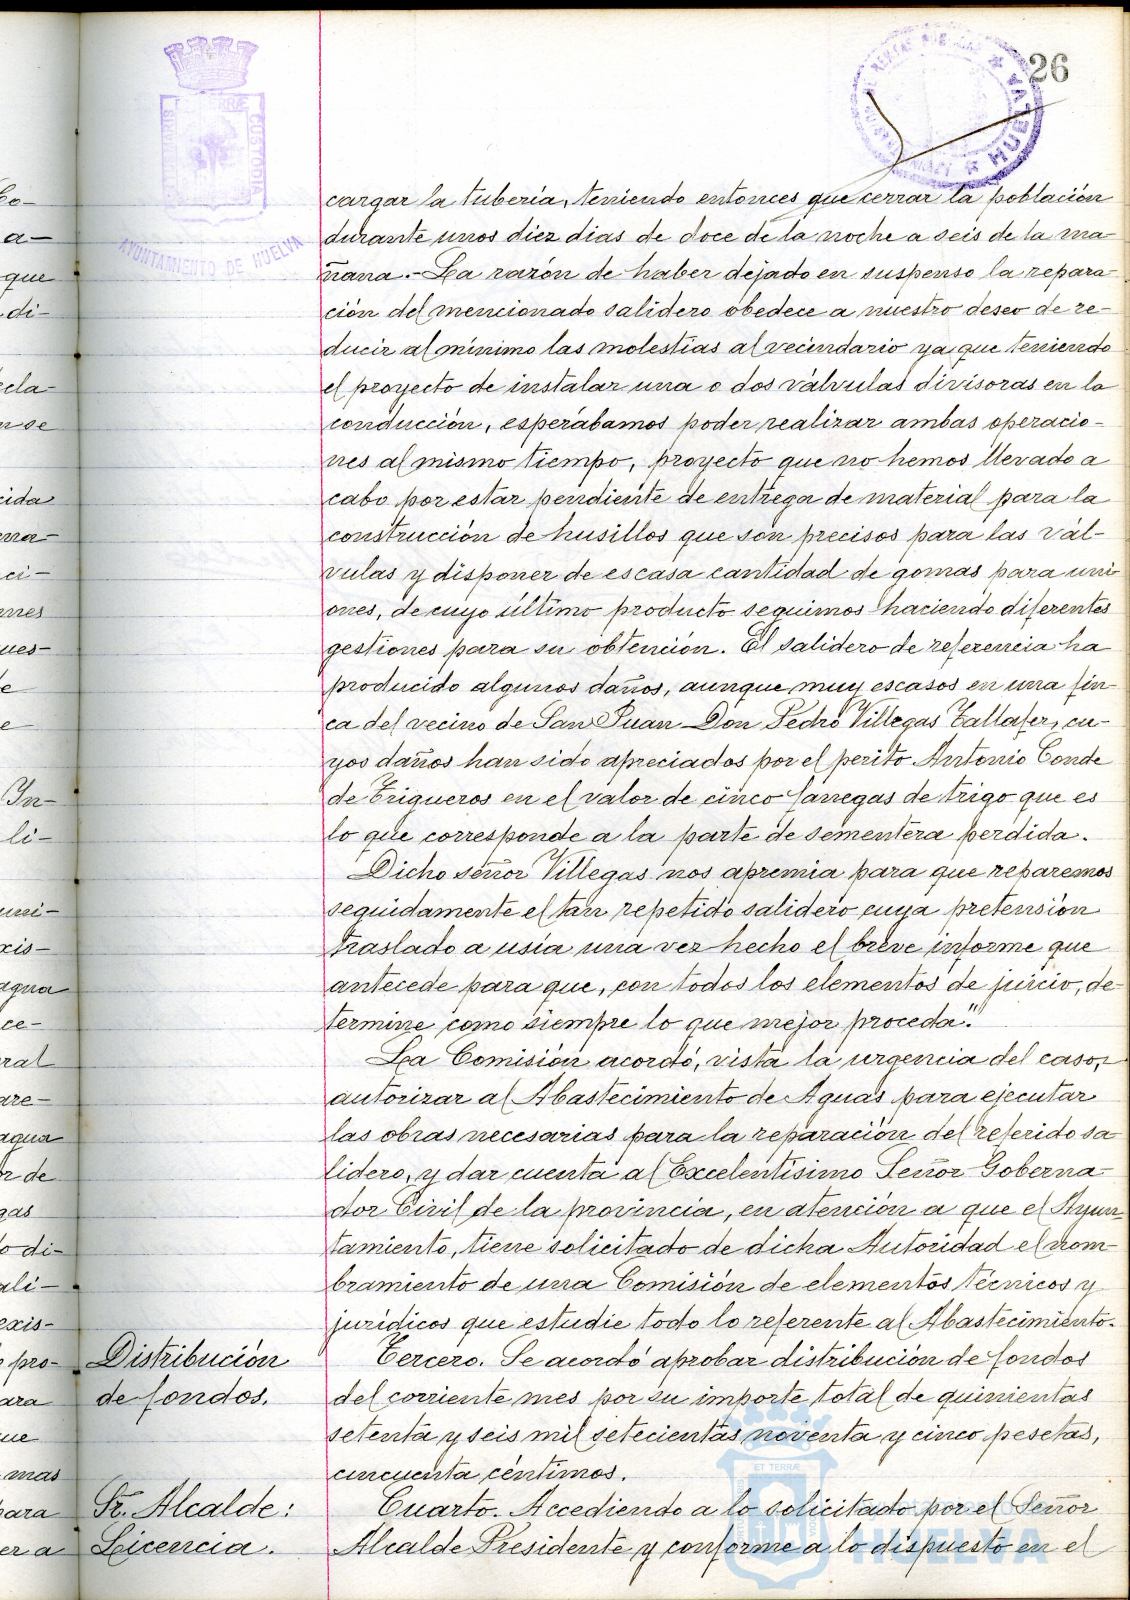 26
AYUNTAMIENTO DE HUELVA
HUELVA
cargar la tubería, teniendo entonces que cerrar la población
durante unos diez dias de doce de la noche a seis de la ma-
ñana.- La razón de haber dejado en suspenso la repara-
ción del mencionado salidero obedece a nuestro deseo de re-
ducir al mínimo las molestias al vecindario ya que teniendo
el proyecto de instalar una o dos válvulas divisoras en la
conducción, esperábamos poder realizar ambas operacio-
nes al mismo tiempo, proyecto que no hemos llevado a
cabo por estar pendiente de entrega de material para la
construcción de husillos que son precisos para las vál-
vulas y disponer de escasa cantidad de gomas para uni-
ones, de cuyo último producto seguimos haciendo diferentes
gestiones para su obtención. El salidero de referencia ha
producido algunos daños, aunque muy escasos en una fin-
ca del vecino de San Juan Don Pedro Villegas Tallafer, cu-
yos daños han sido apreciados por el perito Antonio Conde
de Trigueros en el valor de cinco fanegas de trigo que es
lo que corresponde a la parte de sementera perdida.
Dicho señor Villegas nos apremia para que reparemos
seguidamente el tan repetido salidero cuya pretensión
traslado a usía una vez hecho el breve informe que
antecede para que, con todos los elementos de juicio, de-
termine como siempre lo que mejor proceda".
La Comisión acordó, vista la urgencia del caso,
autorizar al Abastecimiento de Aguas para ejecutar
las obras necesarias para la reparación del referido sa-
lidero, y dar cuenta al Excelentísimo Señor Goberna-
dor Civil de la provincia, en atención a que el Ayun-
tamiento, tiene solicitado de dicha Autoridad el nom-
bramiento de una Comisión de elementos técnicos y
jurídicos que estudie todo lo referente al Abastecimiento.
Distribución
de fondos.
Tercero. Se acordó aprobar distribución de fondos
del corriente mes por su importe total de quinientas
setenta y seis mil setecientas noventa y cinco pesetas,
cincuenta céntimos.
Sr. Alcalde:
Licencia.
Cuarto. Accediendo a lo solicitado por el Señor
Alcalde Presidente y conforme a lo dispuesto en el
HUELVA